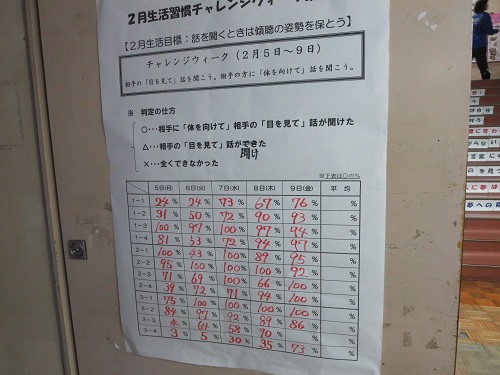 ２月生活習慣チャレンジウィーク
【２月生活目標：話を聞くときは傾聴の姿勢を保とう】
チャレンジウィーク（２月５日～９日）
相手の「目を見て」話を聞こう。相手の方に「体を向けて」話を聞こう。
※ 判定の仕方
○…相手に「体を向けて」相手の「目を見て」話が聞けた
△…相手の「目を見て」話ができた
聞け
×…全くできなかった
※下表は○の％
5日(月) 6日(火) 7日(水) 8日(木) 9日(金) 平均
１－１ 24% 24% 73% 67% 76% %
１－２ 31% 50% 72% 90% 93% %
１－３ 100% 97% 100% 97% 94% %
１－４ 81% 53% 72% 94% 97% %
２－１ 100% 43% 100% 89% 95% %
２－２ 95% 100% 100% 100% 92% %
２－３ 71% 69% 68% 66% 100% %
２－４ 39% 72% 71% 94% 100% %
３－１ 75% 100% 100% 100% 100% %
３－２ 84% 97% 92% 89% 100% %
３－３ % 64% 58% 70% 86% %
３－４ 3% 5% 30% 35% 73% %